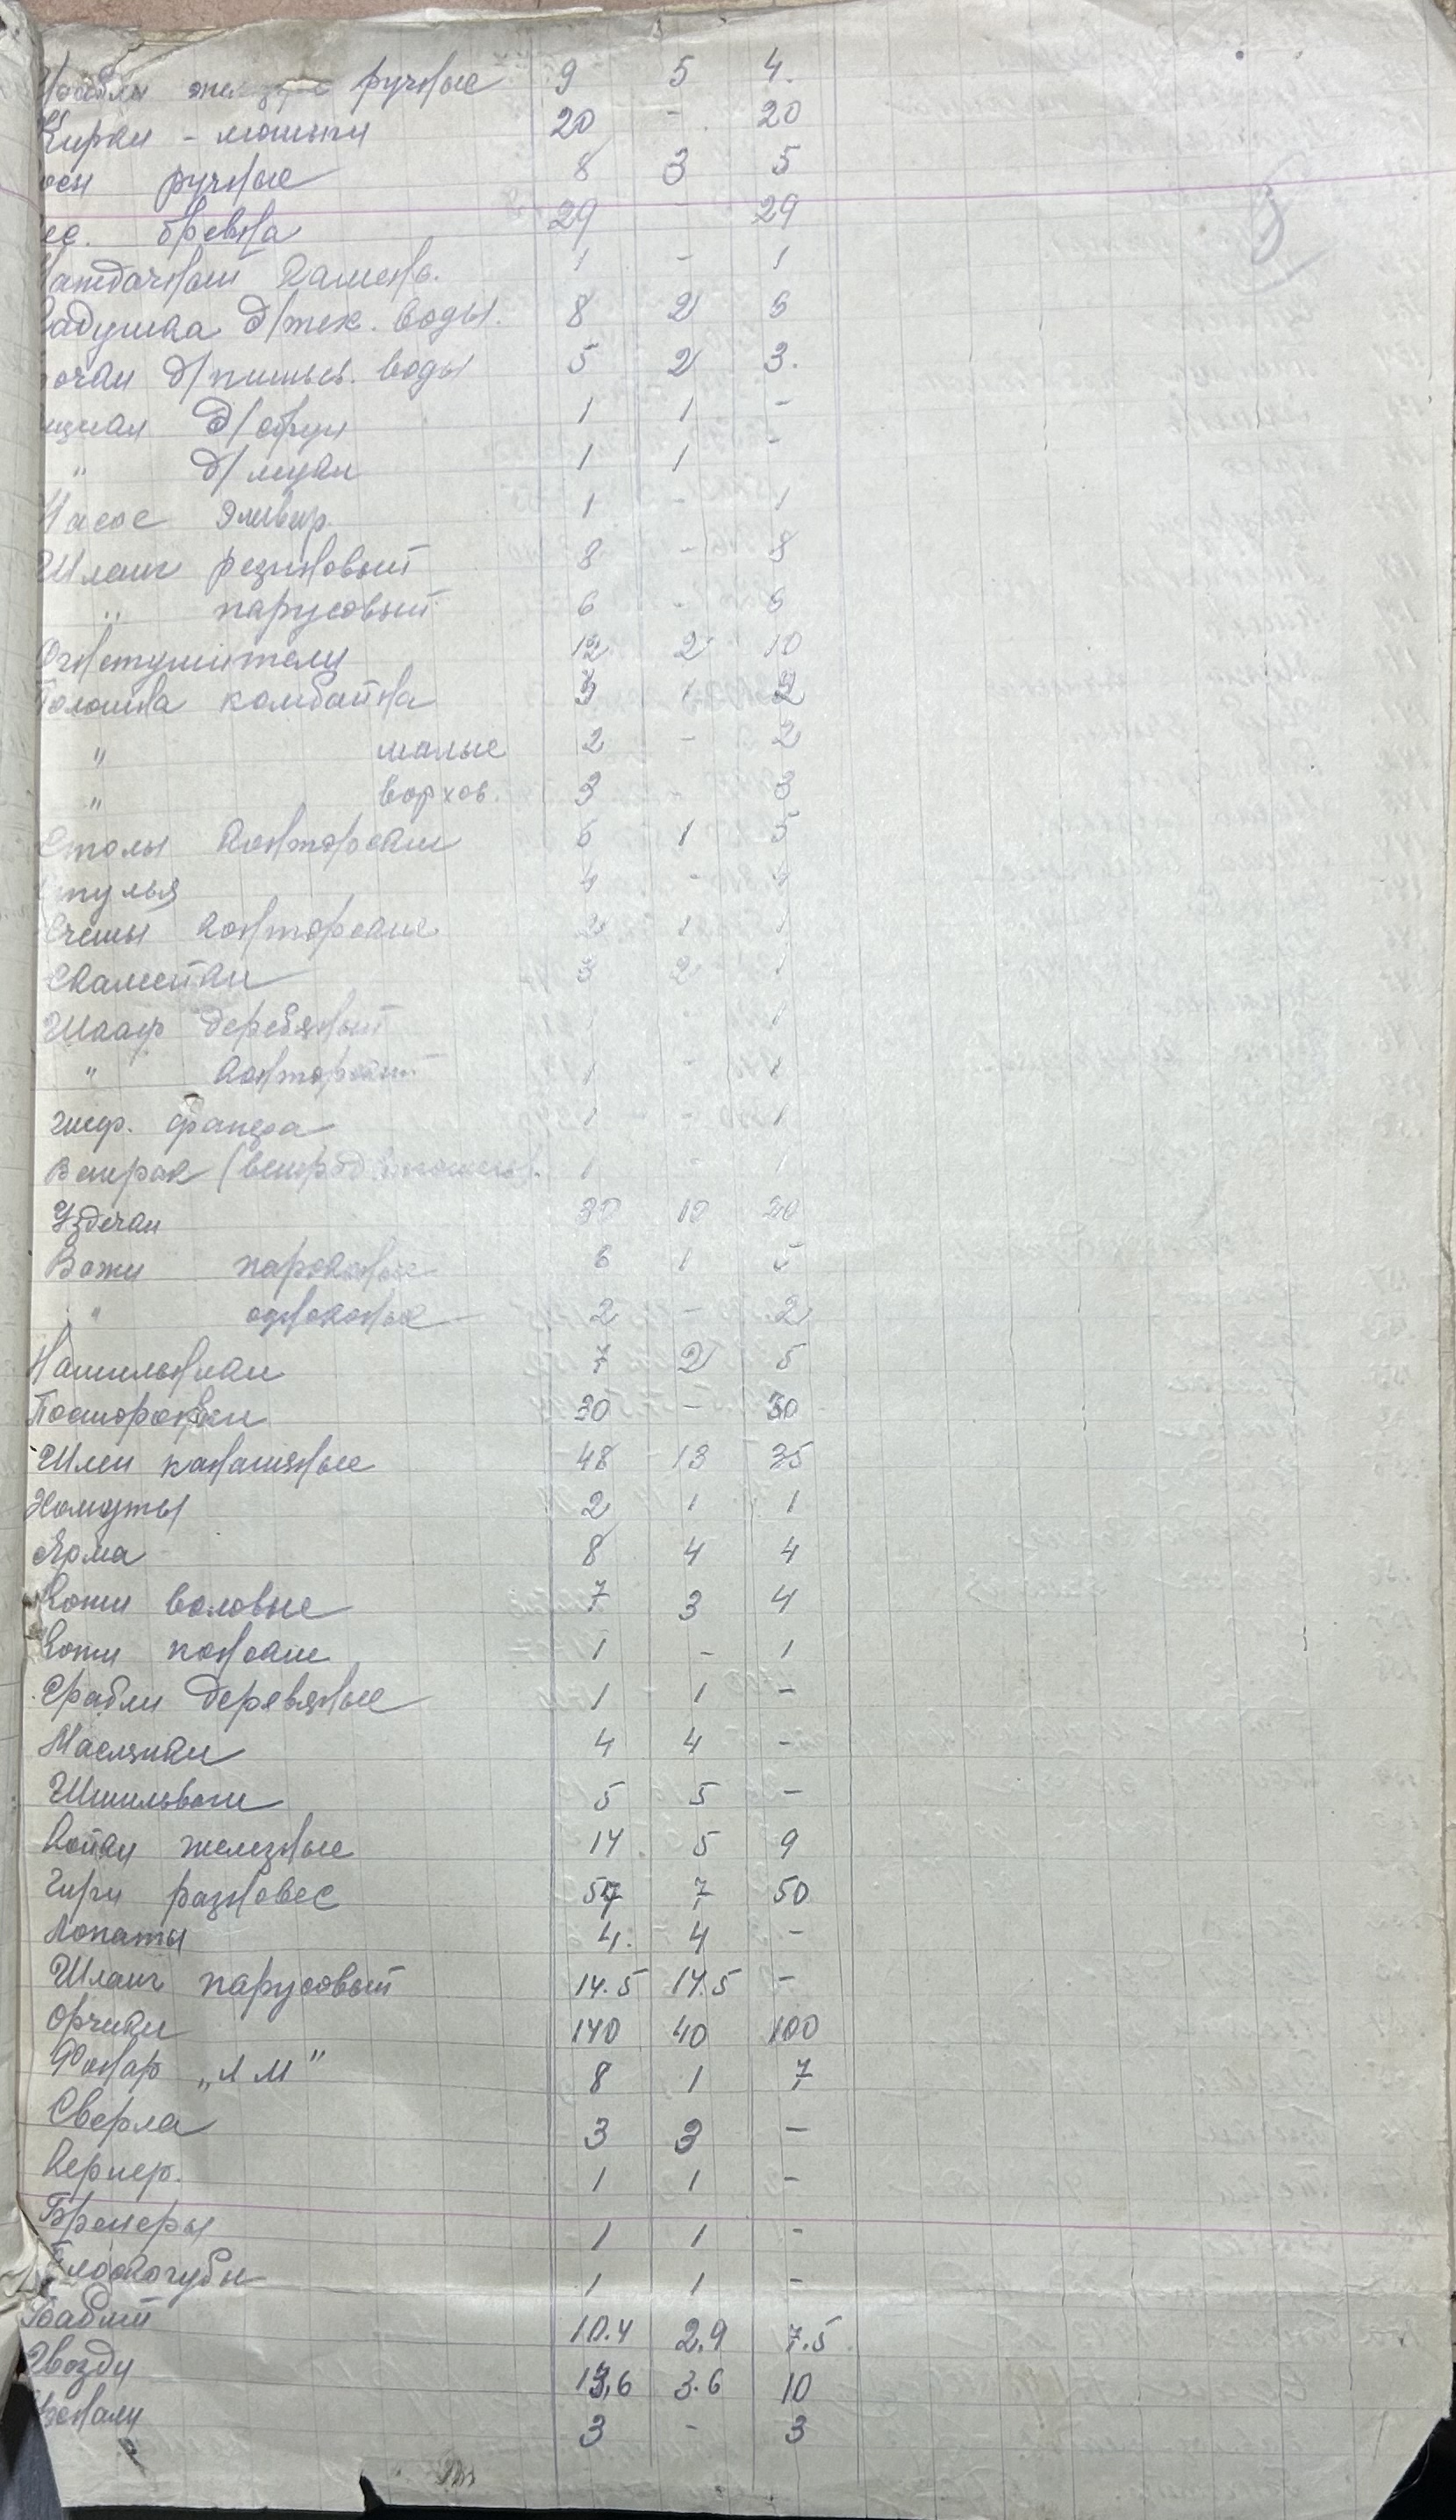 Грабли железные ручные 9 5 4.
Кирки - мотыги 20 - 20
косы ручные 8 3 5
лес. бревна 29 - 29
Наждачный камень. 1 - 1
Кадушка д/тех. воды. 8 2 6
бочки д/питьев. воды 5 2 3.
ящики д/сбруи 1 1 -
" д/муки 1 1 -
Насос 1 - 1
Шланг резиновый 8 - 8
" парусовый 6 - 6
Огнетушители 12 2 10
Полотна комбайна 3 1 2
" малые 2 - 2
" верхов. 3 - 3
Столы конторские 6 1 5
Стулья 4 - 4
Счеты конторские 2 1 1
Скамейки 3 2 1
Шкаф деревяный 1 - 1
" конторский 1 - 1
1 - 1
1 - 1
Уздечки 30 10 20
Вожи пароконые 6 1 5
" одноконые 2 - 2
Нашильники 7 2 5
Посторонки 30 - 30
Шлеи конопяные 48 13 35
Хомуты 2 1 1
Ярма 8 4 4
Кожи воловые 7 3 4
Кожи конские 1 - 1
Грабли деревяные 1 1 -
Маслянки 4 4 -
Штильваги 5 5 -
Копки железные 14 5 9
Гири разновес 57 7 50
Лопаты 4. 4 -
Шланг парусовый 14.5 14.5 -
Орчики 140 40 100
Фонар „ЛМ" 8 1 7
Сверла 3 3 -
Кернер. 1 1 -
1 1 -
Плоскогубы 1 1 -
Бабит 10.4 2.9 7.5
Гвозди 13,6 3.6 10
3 - 3